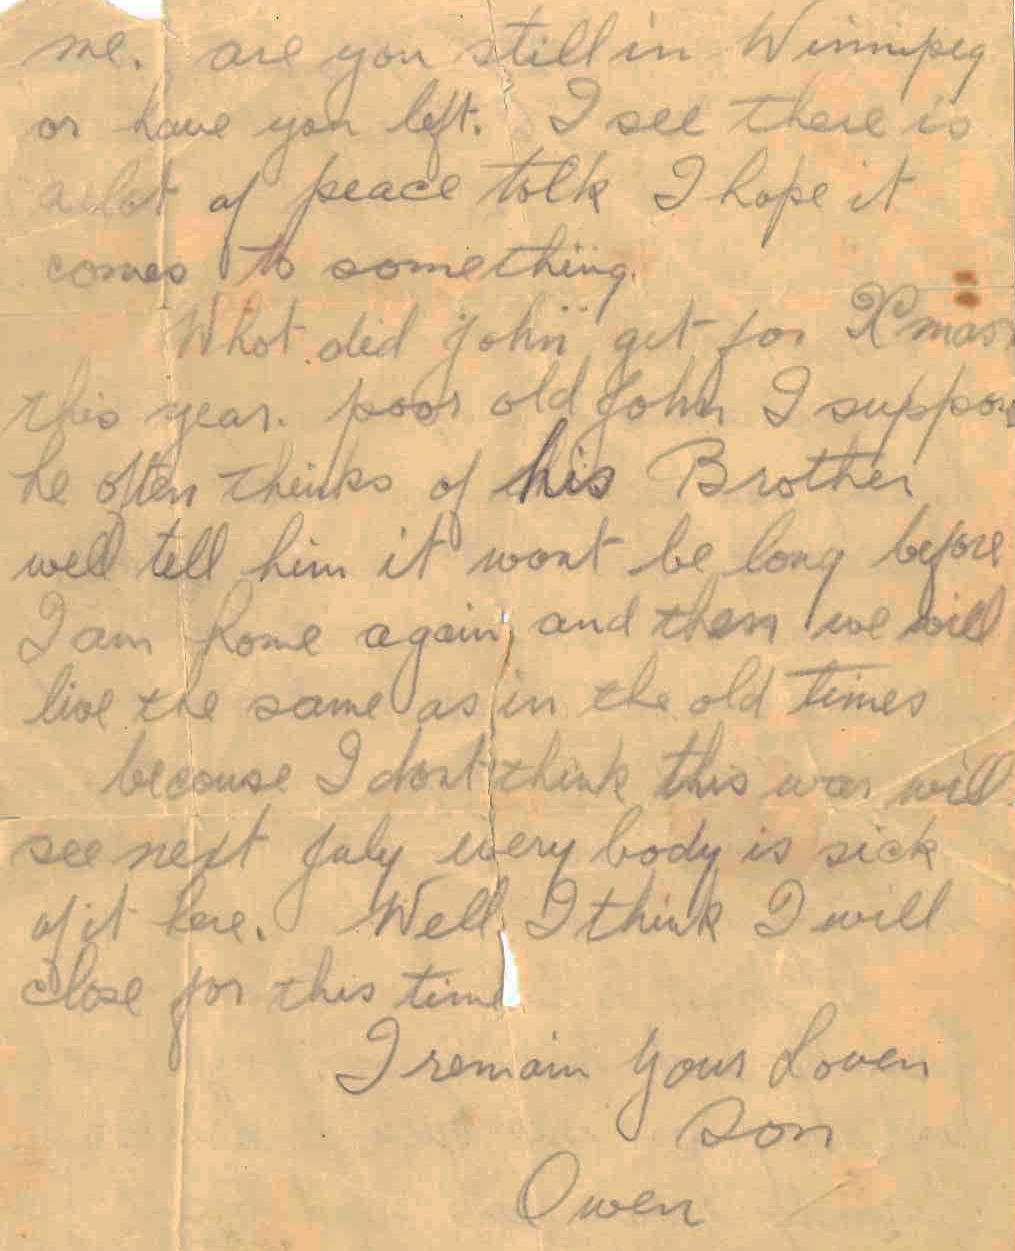 me. are you still in Winnipeg
or have you left. I see there is
alot of peace tolk I hope it
comes to something.
What did john get for Xmas
this year. poor old John I suppose
he often thinks of his Brother
well tell him it wont be long before
I am home again, and then we will
live the same as in the old times
becouse I dont think this war will
see next July every body is sick
of it here. Well I think I will
close for this time
I remain your Loven
Son
Owen